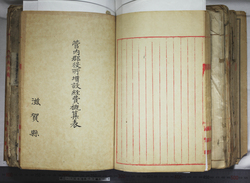 管内郡役所増設経費概算表
滋賀縣